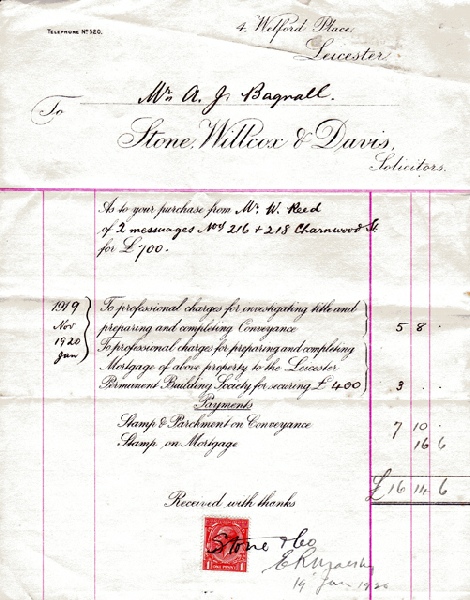 TELEPHONE Nº 520.
4, Welford Place,
Leicester
Mr. A. J. Bagnall.
To
Stone, Willcox & Davis,
Solicitors.
As to your purchase from Mr. W. Reed
of 2 messuages Nos 216 & 218 Charnwood St
for £700.
1919 To professional charges for investigating title and
Nov preparing and completing Conveyance 5 8 .
1920 To professional charges for preparing and completing
Jan Mortgage of above property to the Leicester
Permanent Building Society for securing £400 3 . .
Payments
Stamp & Parchment on Conveyance 7 10 .
Stamp on Mortgage 16 6
£16 14 6
Received with thanks
Stone & Co
1 ONE PENNY 1
14 Jan 1920